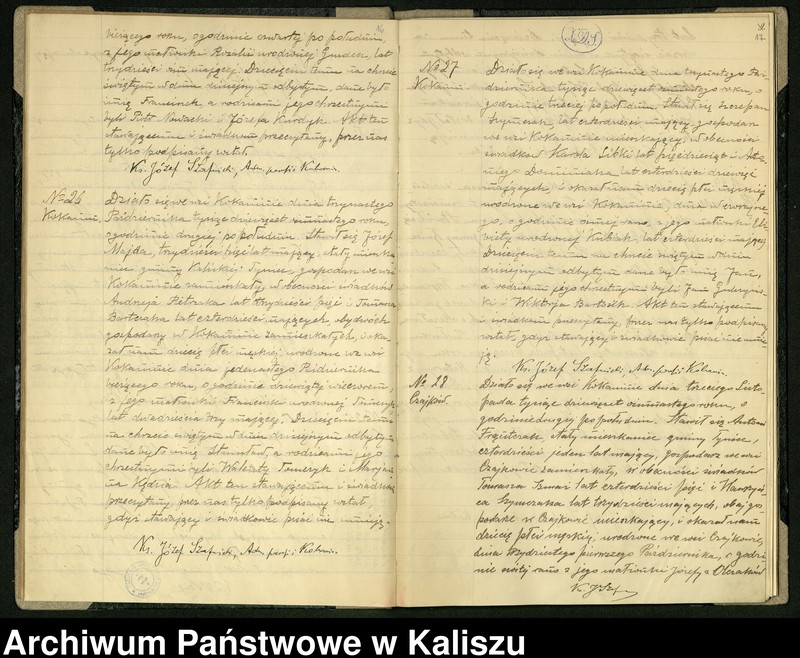 bieżącego roku, o godzinie czwartej po południu,
z jego małżonki Rozalii urodzonej lat
trzydzieści mającej. Dziecięciu temu na chrzcie
świętym w dniu dzisiejszym odbytym, dane było
imię Franciszek, a rodzicami jego chrzestnymi
byli Piotr i Józefa Kurdyk. Akt ten
stawającemu i świadkom przeczytany, przez nas
tylko podpisany został.
Ks. Józef Szafnicki, Adm. parafii Kokanin.
№ 26
Kokanin.
Działo się we wsi Kokaninie dnia trzynastego
Października tysiąc dziewięćset roku,
o godzinie drugiej po południu. Stawił się Józef
Majda, trzydzieści pięć lat mający, stały mieszka-
niec gminy Kaliskiej Tyniec, gospodarz we wsi
Kokaninie zamieszkały, w obecności świadków
Andrzeja Pietrzaka lat trzydzieści pięć i Tomasza
Bartczaka lat czterdzieści mających, obydwóch
gospodarzy w Kokaninie zamieszkałych, i oka-
zał nam dziecię płci męskiej urodzone we wsi
Kokaninie dnia jedenastego Października
bieżącego roku, o godzinie dziewiątej wieczorem,
z jego małżonki Franciszki urodzonej
lat dwadzieścia trzy mającej. Dziecięciu temu
na chrzcie świętym w dniu dzisiejszym odbytym
dane było imię Stanisław, a rodzicami jego
chrzestnymi byli Walenty i Maryan-
na Kędzia. Akt ten stawającemu i świadkom
przeczytany, przez nas tylko podpisany został,
gdyż stawający i świadkowie pisać nie umieją.
Ks. Józef Szafnicki, Adm. parafii Kokanin.
№ 27
Kokanin.
Działo się we wsi Kokaninie dnia trzynastego Paź-
dziernika tysiąc dziewięćset roku, o
godzinie trzeciej po południu. Stawił się Szczepan
Szymczak, lat czterdzieści mający, gospodarz
we wsi Kokaninie mieszkający, w obecności
świadków Karola lat pięćdziesiąt i
Dominiaka lat czterdzieści dziewięć
mających, i okazał nam dziecię płci męskiej
urodzone we wsi Kokaninie, dnia wczorajsze-
go, o godzinie ósmej rano, z jego małżonki Elż-
biety urodzonej Kubiak, lat czterdzieści mającej.
Dziecięciu temu na chrzcie świętym w dniu
dzisiejszym odbytym dane było imię Jan,
a rodzicami jego chrzestnymi byli Jan
i Wiktorja Bartosik. Akt ten stawającemu
i świadkom przeczytany, przez nas tylko podpisany
został, gdyż stawający i świadkowie pisać nie umie-
ją.
Ks. Józef Szafnicki, Adm. parafii Kokanin.
№ 28
Czajków
Działo się we wsi Kokaninie dnia trzeciego Listo-
pada tysiąc dziewięćset roku, o
godzinie drugiej po południu. Stawił się Antoni
Frątczak, stały mieszkaniec gminy Tyniec,
czterdzieści jeden lat mający, gospodarz we wsi
Czajkowie zamieszkały, w obecności świadków
Tomasza lat czterdzieści pięć i Wawrzyń-
ca Szymczaka lat trzydzieści mających, obaj gos-
podarze w Czajkowie mieszkający, i okazał nam
dziecię płci męskiej, urodzone we wsi Czajkowie,
dnia trzydziestego pierwszego Października, o godzi-
nie szóstej rano z jego małżonki Józefy z Olczaków
Archiwum Państwowe w Kaliszu